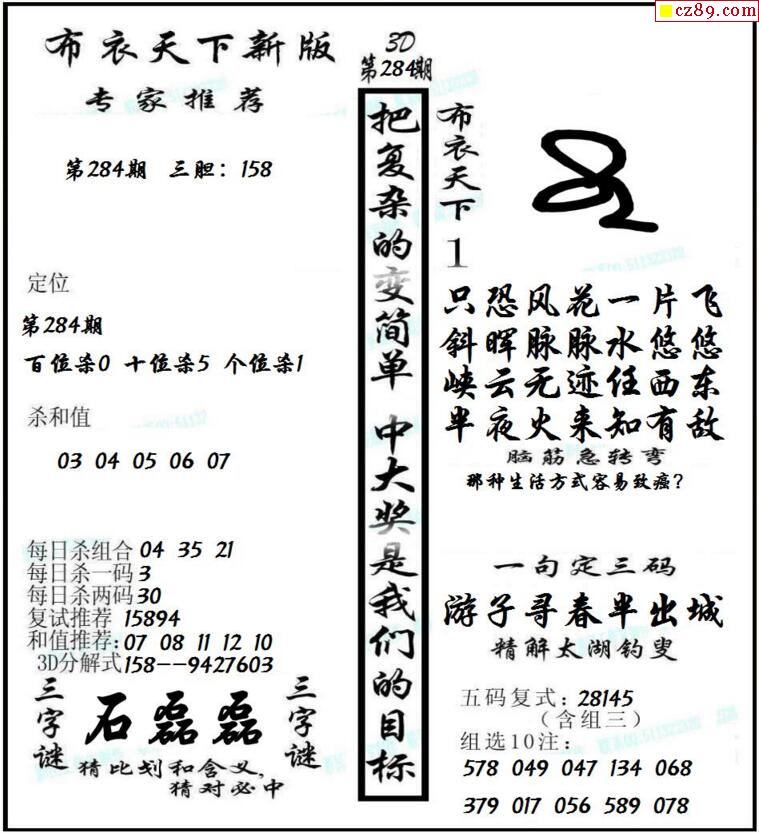 cz89.com
布衣天下新版
专家推荐
第284期 三胆：158
定位
第284期
百位杀0 十位杀5 个位杀1
杀和值
03 04 05 06 07
每日杀组合 04 35 21
每日杀一码 3
每日杀两码 30
复试推荐 15894
和值推荐：07 08 11 12 10
3D分解式 158--9427603
三字谜
石磊磊
三字谜
猜比划和含义，
猜对必中
3D
第284期
把复杂的变简单 中大奖是我们的目标
布衣天下
1
只恐风花一片飞
斜晖脉脉水悠悠
峡云无迹任西东
半夜火来知有敌
脑筋急转弯
那种生活方式容易致癌？
一句定三码
游子寻春半出城
精解太湖钓叟
五码复式：28145
（含组三）
组选10注：
578 049 047 134 068
379 017 056 589 078